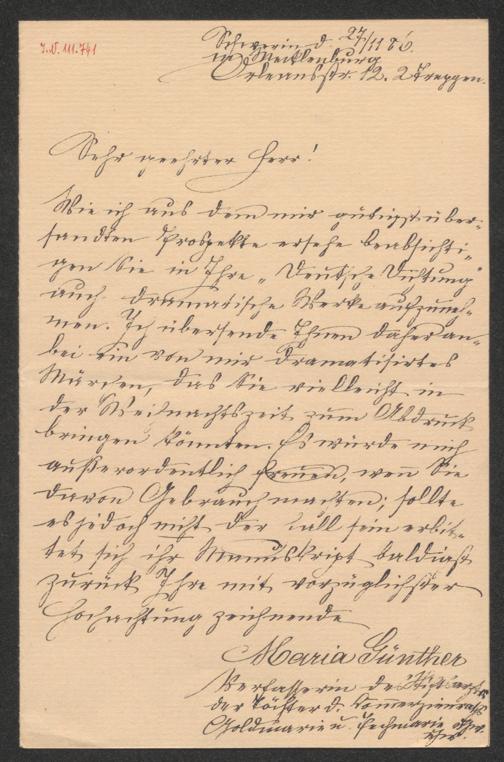 J.N. 111.741
Schwerin d. 27/11 86.
in Mecklenburg
Orleansstr. 12. 2 Treppen.
Sehr geehrter Herr!
Wie ich aus dem mir gütigst über-
sandten Prospekte ersehe beabsichti-
gen Sie in Ihre „Deutsche Dichtung"
auch dramatische Werke aufzuneh-
men. Ich übersende Ihnen daher an-
bei ein von mir dramatisirtes
Märchen, das Sie vielleicht in
der Weihnachtszeit zum Abdruck
bringen könnten. Es würde mich
außerordentlich freuen, wenn Sie
davon Gebrauch machten; sollte
es jedoch nicht der Fall sein erbit-
tet sich ihr Manuskript baldigst
zurück Ihre mit vorzüglichster
Hochachtung zeichnende
Maria Günther
Verfasserin des
der Töchter d. Commerzienraths
Goldmarie u. Pechmarie